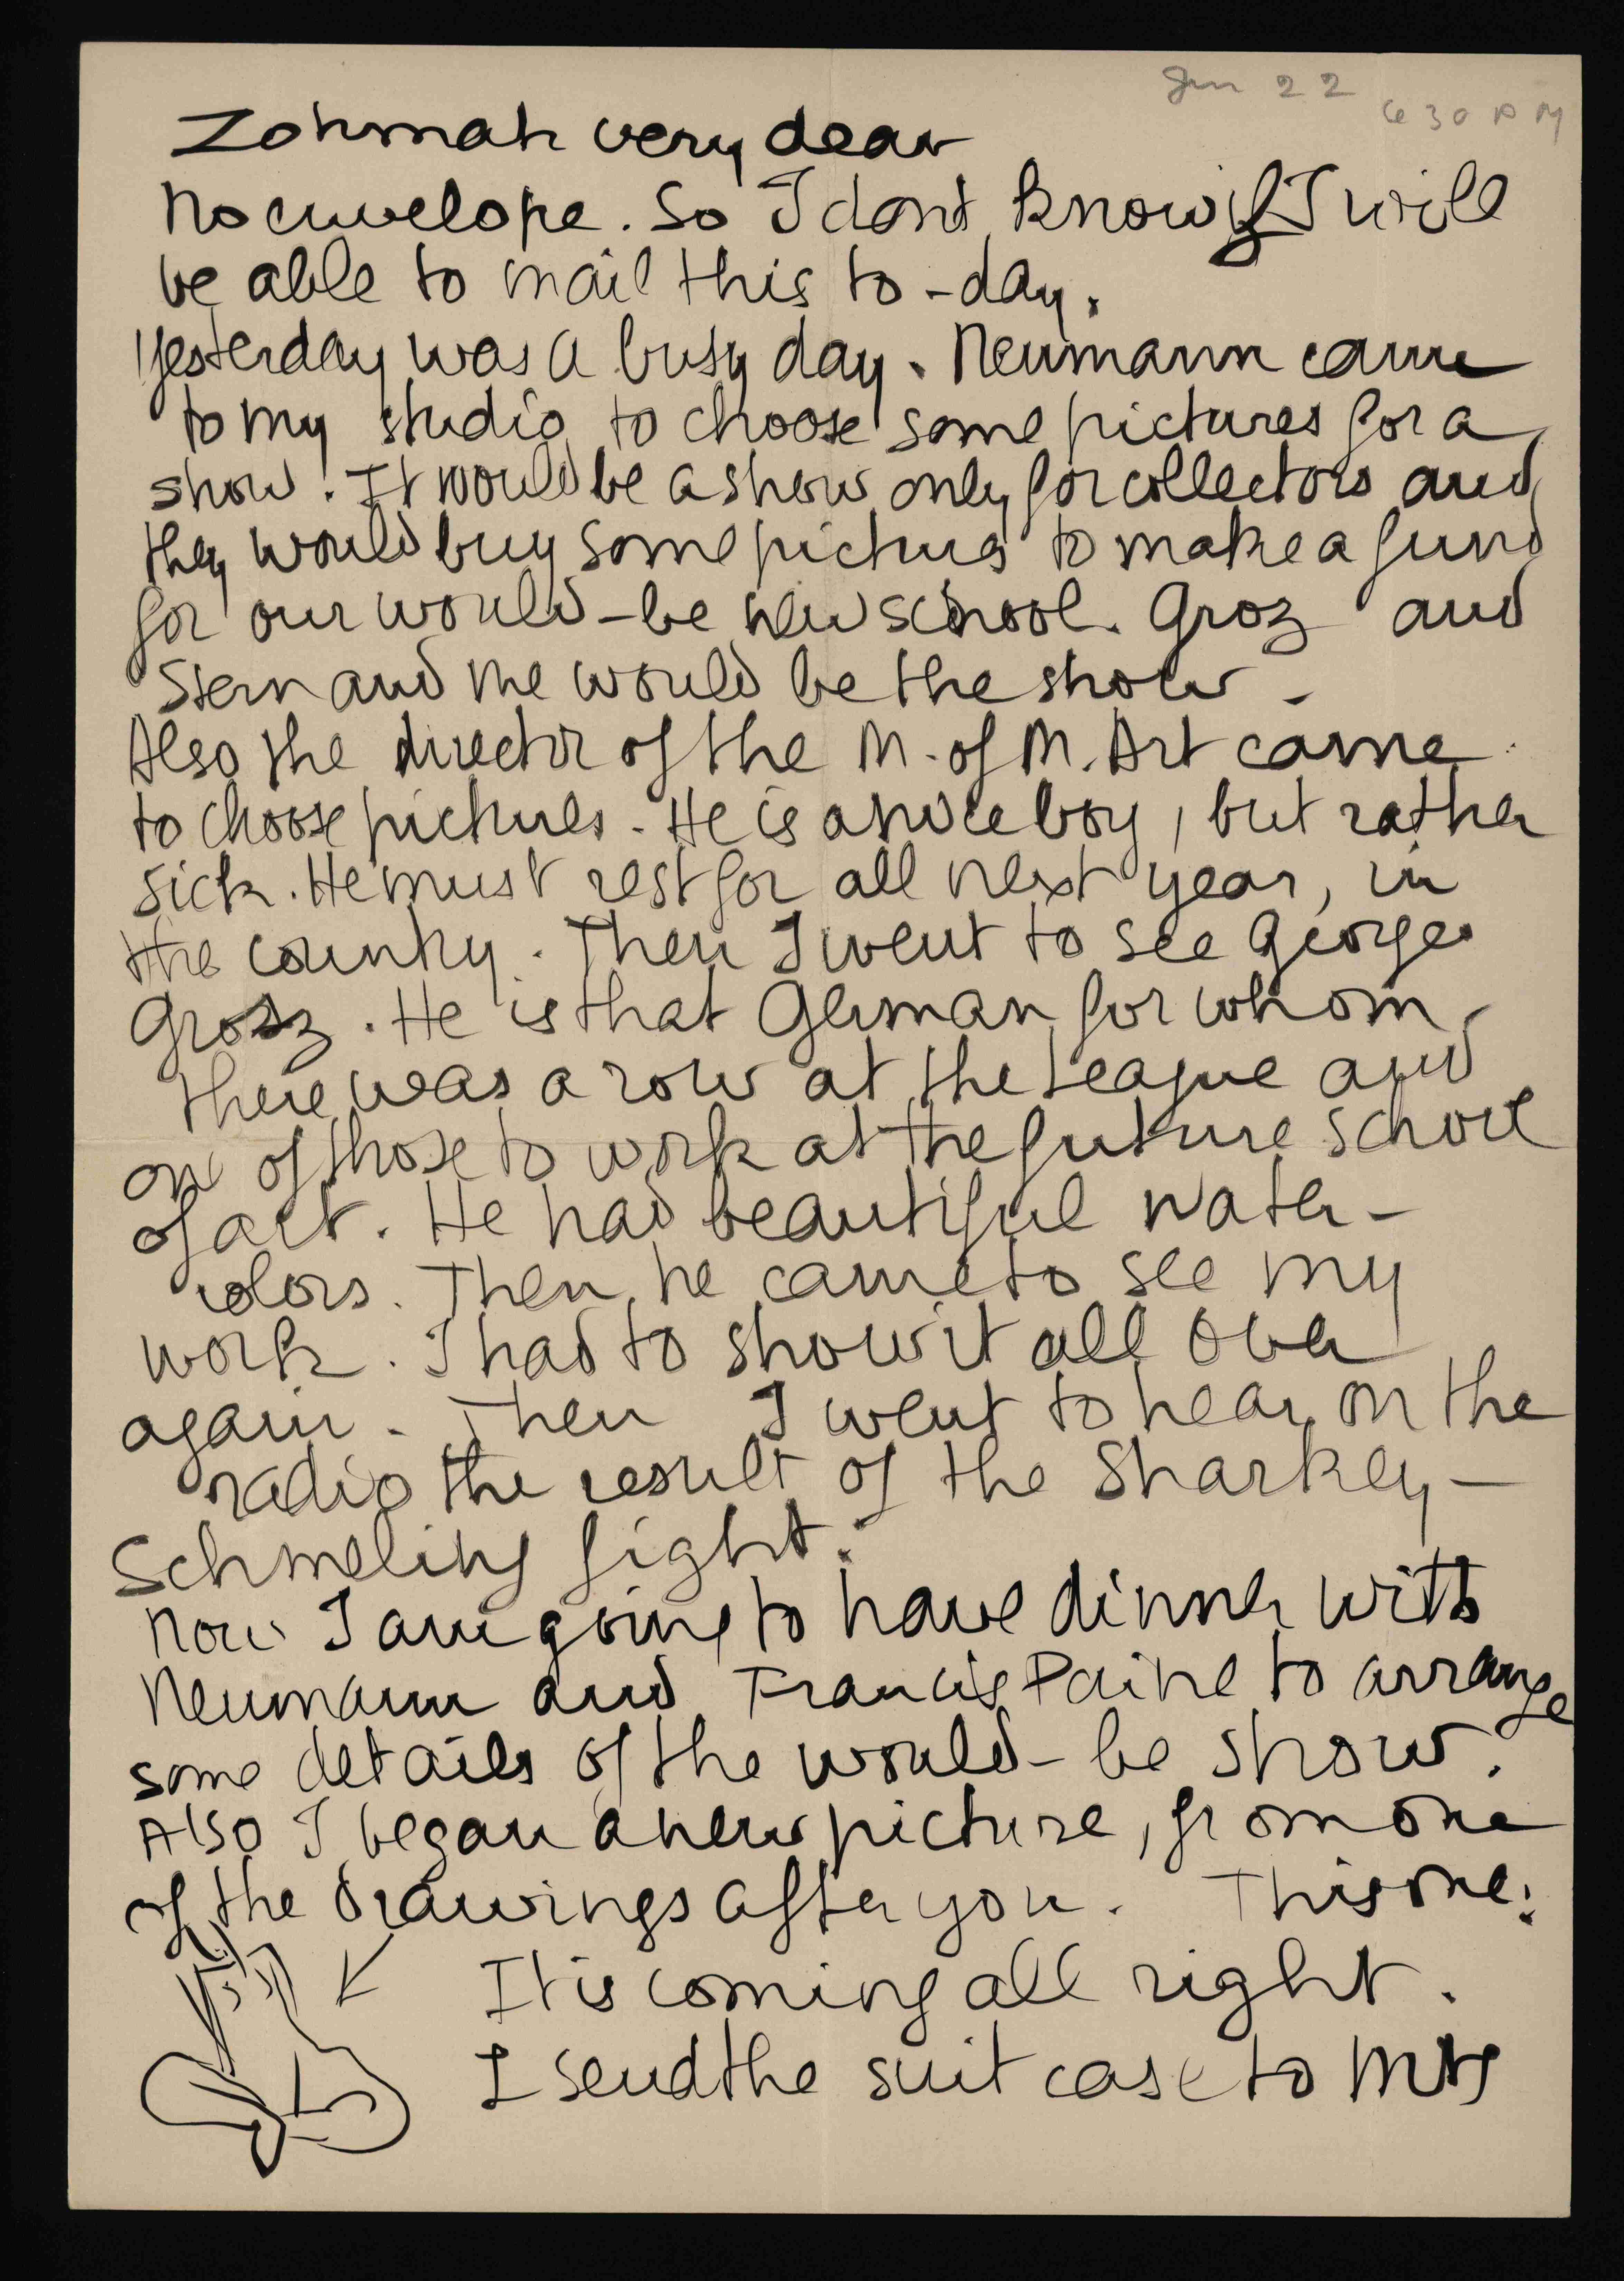 Jun 22
6 30 PM
Zohmah very dear
No envelope. So I dont know if I will
be able to mail this to-day.
Yesterday was a busy day. Neumann came
to my studio to choose some pictures for a
show. It would be a show only for collectors and
they would buy some pictures to make a fund
for our would-be new school. Groz and
Stern and me would be the show.
Also the director of the M. of M. Art came
to choose pictures. He is a nice boy, but rather
sick. He must rest for all next year, in
the country. Then I went to see George
Grosz. He is that German for whom
there was a row at the League and
one of those to work at the future school
of art. He had beautiful water-
colors. Then he came to see my
work. I had to show it all over
again. Then I went to hear on the
radio the result of the Sharkey-
Schmeling fight.
Now I am going to have dinner with
Neumann and Francis Paine to arrange
some details of the would-be show.
Also I began a new picture, from one
of the drawings after you. This one:
It is coming all right.
I send the suit case to Mrs